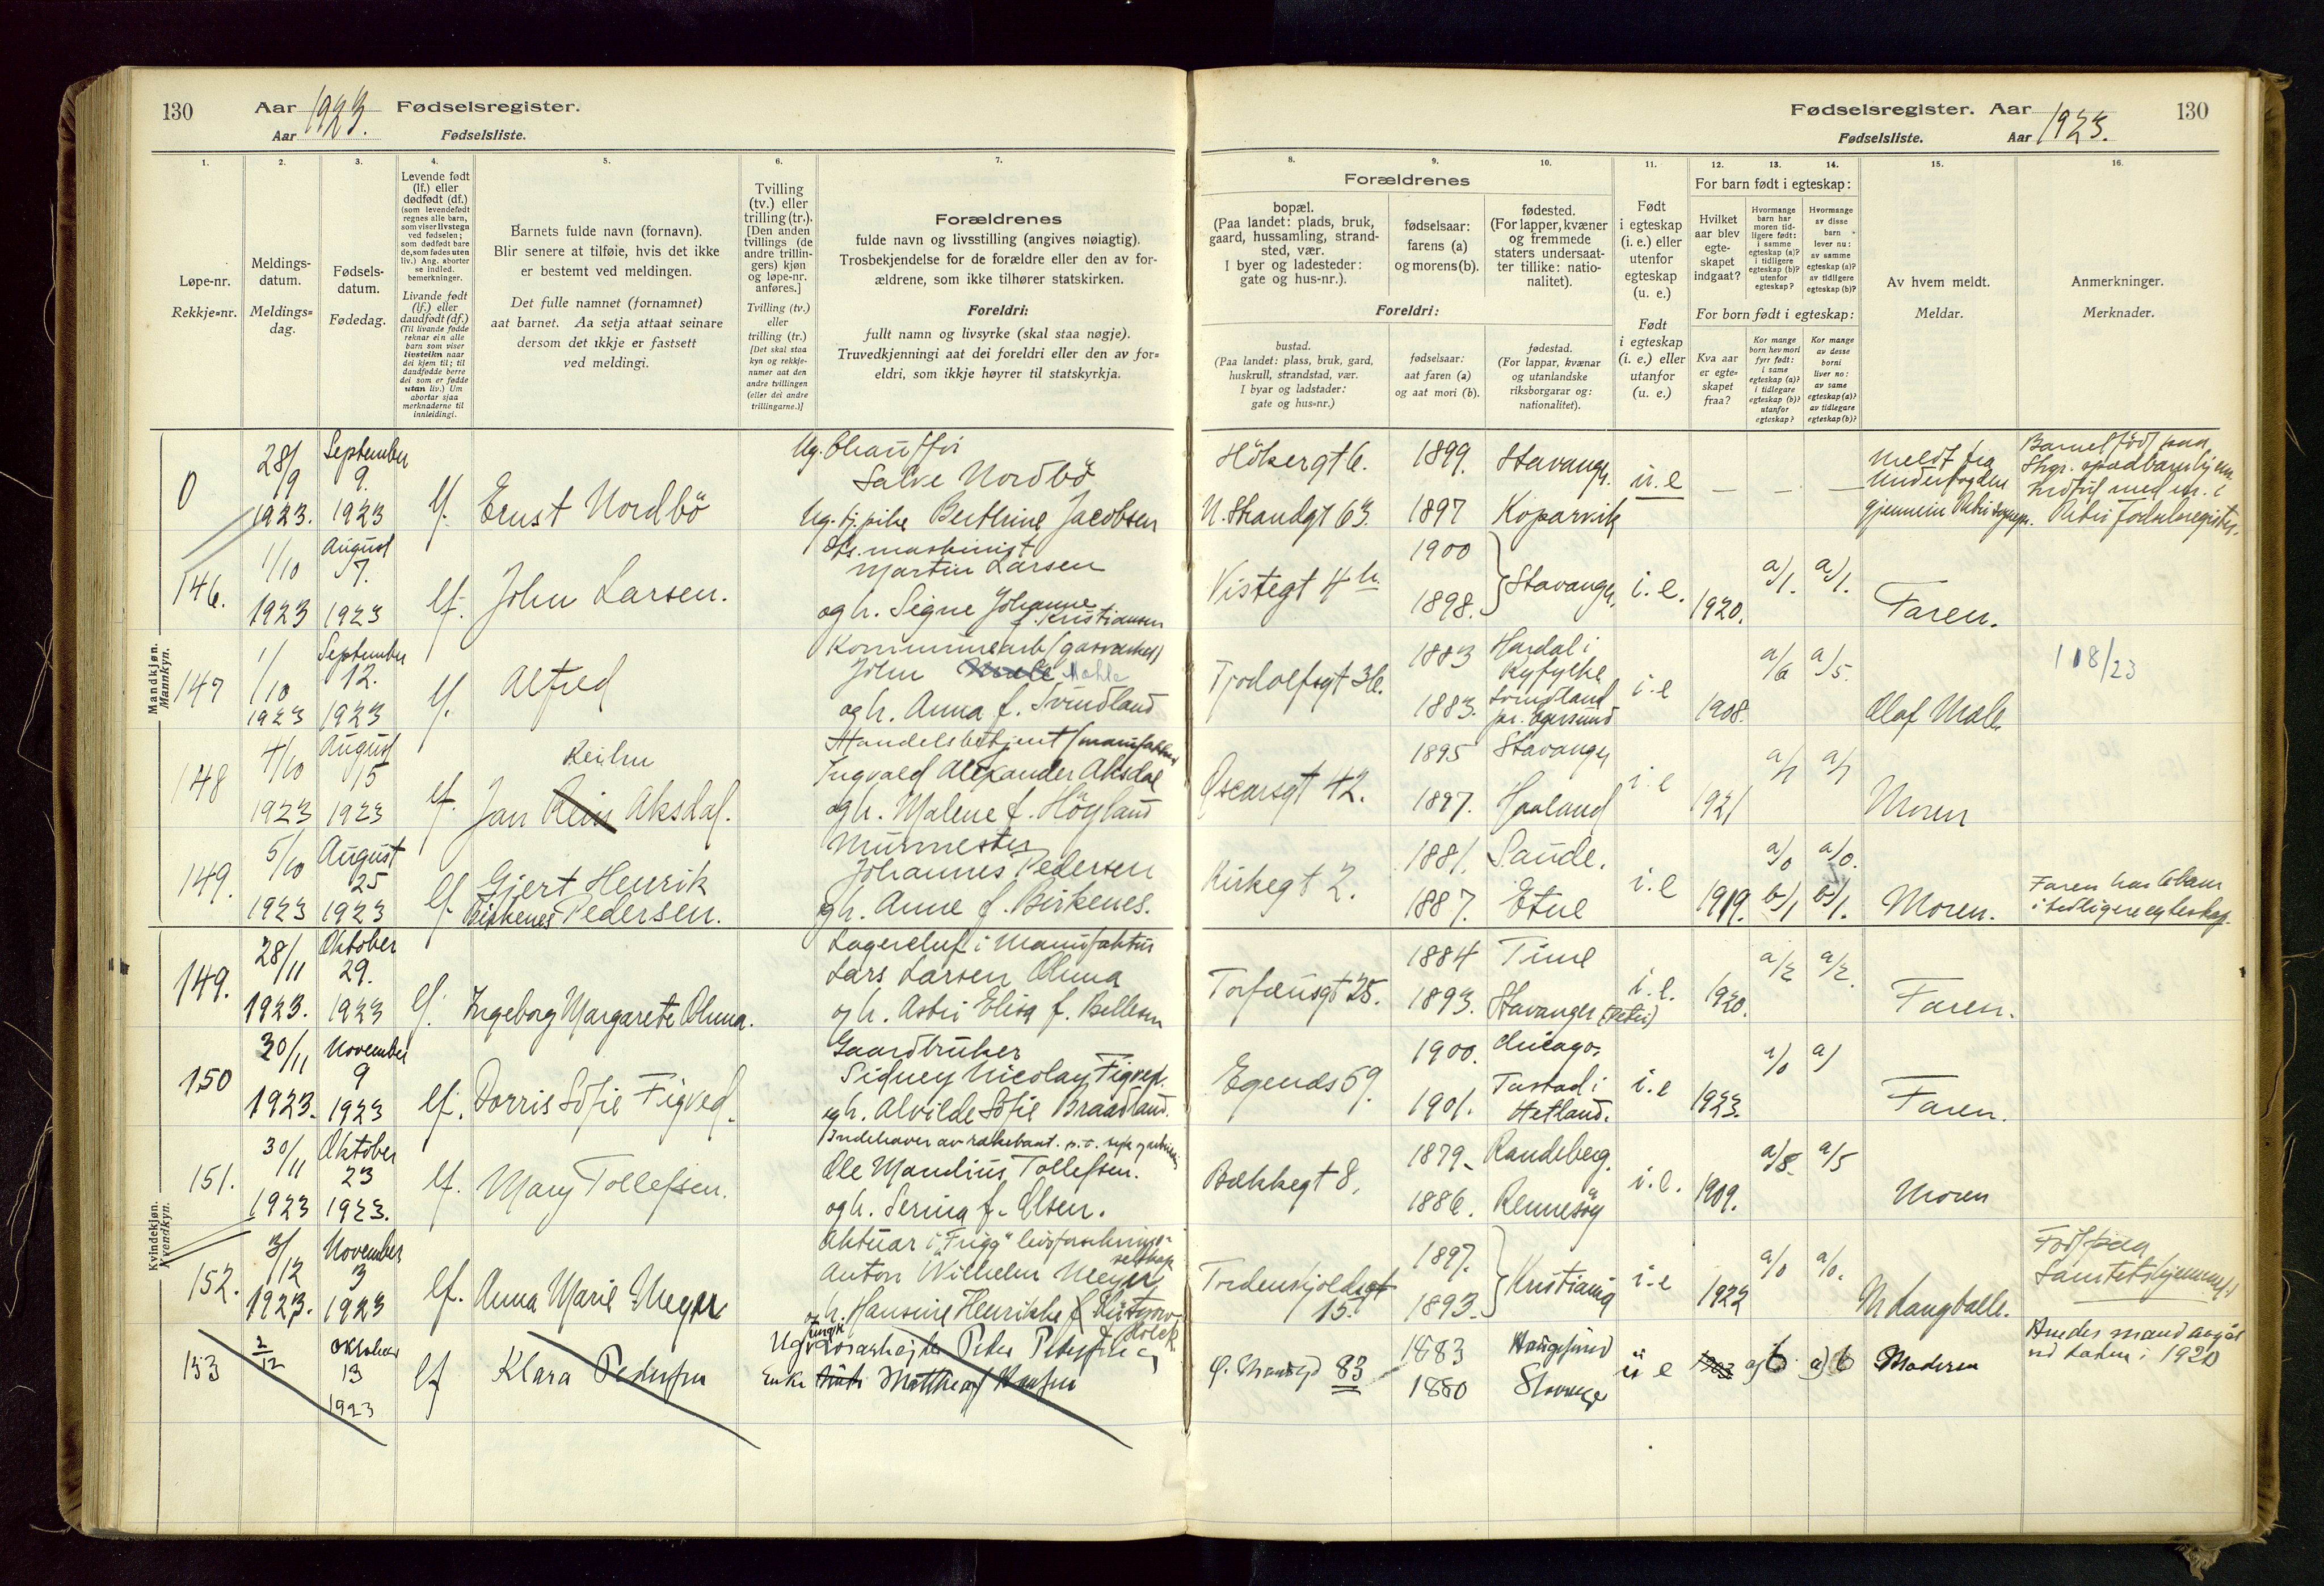 130 Aar 1923. Fødselsregister.
Aar Fødselsliste.
1.
Løpe-nr.
Rekkje=nr.
2.
Meldings-
datum.
Meldings=
dag.
3.
Fødsels-
datum.
Fødedag.
4.
Levende født
(lf.) eller
dødfødt (df.)
(som levendefødt
regnes alle barn,
som viser livstegn
ved fødselen;
som dødfødt bare
de, som fødes uten
liv.) Ang. aborter
se indled.
bemerkninger.
Livande født
(lf.) eller
daudfødt (df.)
(Til livande fødde
reknar ein alle
barn som viser
livsteikn naar
dei kjem til; til
daudfødde berre
dei som er fødde
utan liv.) Um
abortar sjaa
merknaderne til
innleidingi.
5.
Barnets fulde navn (fornavn).
Blir senere at tilføie, hvis det ikke
er bestemt ved meldingen.
Det fulle namnet (fornamnet)
aat barnet. Aa setja attaat seinare
dersom det ikkje er fastsett
ved meldingi.
6.
Tvilling
(tv.) eller
trilling (tr.).
[Den anden
tvillings (de
andre trillin-
gers) kjøn
og løpe-nr.
anføres.]
Tvilling (tv.)
eller
trilling (tr.)
[Det skal staa
kyn og rekkje-
numer aat den
andre tvillingen
(eller dei andre
trillingarne.)]
7.
Forældrenes
fulde navn og livsstilling (angives nøiagtig).
Trosbekjendelse for de forældre eller den av for-
ældrene, som ikke tilhører statskirken.
Foreldri:
fullt namn og livsyrke (skal staa nøgje).
Truvedkjenningi aat dei foreldri eller den av for=
eldri, som ikkje høyrer til statskyrkja.
Mandkjøn.
Mannkyn.
0 28/9 1923. September 9. 1923 lf. Ernst Nordbö
Ug. Chauffør
Salve Nordbö
Ug. tj.pike Berthine Jacobsen
146. 1/10 1923 August 17. 1923 lf. John Larsen.
maskinist
Martin Larsen
og h. Signe Johanne
f. Kristiansen
147 1/10 1923 September 12. 1923 lf. Alfred
Kommunearb. (gasverket)
John Male Mahle
og h. Anna f. Svindland
148 4/10 1923 August 15 1923 lf. Jan Rein Aksdal.
Handelsbetjent (manufaktur)
Ingvald Alexander Aksdal
og h. Malene f. Höyland
149. 5/10 1923 August 25 1923 lf. Gjert Henrik
Birkenes Pedersen.
Murmester
Johannes Pedersen
og h. Anne f. Birkenes.
Kvindekjøn.
Kvendkyn.
149. 28/11 1923. Oktober 29. 1923 lf. Ingeborg Margarete Ohma.
Lagerchef i Manufaktur
Lars Larsen Ohma
og h. Astri Elisa f. Bellesen
150 30/11 1923. November 9 1923 lf. Dorris Sofie Figved.
Gaardbruker
Sidney Nicolay Figved.
og h. Alvilde Sofie Braadland.
151. 30/11 1923 Oktober 23 1923. lf. Mary Tollefsen.
Indehaver av
Ole Mandius Tollefsen.
og h. Serina f. Olsen.
152. 3/12 1923. November 3 1923 lf. Anna Marie Meyer
Aktuar i "Frigg" livsforsikrings-
selskap
Anton Wilhelm Meyer
og h. Hansine Henrikke f.
153 2/12 Oktober 13 1923 lf Klara Pedersen
Peder Pedersen og
Enke Matthea f Hansen
Fødselsregister. Aar 1923. 130
Fødselsliste. Aar
8.
Forældrenes
bopæl.
(Paa landet: plads, bruk,
gaard, hussamling, strand-
sted, vær.
I byer og ladesteder:
gate og hus-nr.).
Foreldri:
bustad.
(Paa landet: plass, bruk, gard,
huskrull, strandstad, vær.
I byar og ladstader:
gate og hus=nr.)
9.
fødselsaar:
farens (a)
og morens (b).
fødselsaar:
aat faren (a)
og aat mori (b).
10.
fødested.
(For lapper, kvæner
og fremmede
staters undersaat-
ter tillike: natio-
nalitet).
fødestad.
(For lappar, kvænar
og utanlandske
riksborgarar og:
nationalitet).
11.
Født
i egteskap
(i. e.) eller
utenfor
egteskap
(u. e.)
Født
i egteskap
(i. e.) eller
utanfor
(u. e.)
12. 13. 14.
For barn født i egteskap:
Hvilket
aar blev
egte-
skapet
indgaat?
Hvormange
barn har
moren tid-
ligere født:
i samme
egteskap (a)?
i tidligere
egteskap (b)?
utenfor
egteskap?
Hvormange
av disse
barn
lever nu:
av samme
egteskap (a)?
av tidligere
egteskap (b)?
For born født i egteskap:
Kva aar
er egte=
skapet
fraa?
Kor mange
born hev mori
fyrr født:
i same
egteskap (a)?
i tidlegare
egteskap (b)?
utanfor
egteskap?
Kor mange
av desse
borni
liver no:
av same
egteskap (a)?
av tidlegare
egteskap (b)?
15.
Av hvem meldt.
Meldar.
16.
Anmerkninger.
Merknader.
Hökergt 6. 1899. Stavanger u. e — — — Meldt fra
N. Strandgt 63. 1897 Kopervik
Underfogden
gjennem Petri
Barnet født paa
Stvgr. spædbarnshjem
Indført med nr. i
Petri fødselsregister.
Vistegt 4 b. 1900 1898. Stavanger. i. e. 1920. a/1. a/1. Faren.
Tjodolfsgt 36. 1883 1883. Ryfylke
Svindland
pr. Egersund i. e 1908. a/6 a/5. Olaf Male 118/23
Oscarsgt 42. 1895 1897. Stavanger Haaland i. e 1921 a/1 a/1 Moren
Kirkegt 2. 1881. 1887. Saude. Etne i. e 1919. a/0 b/1 a/0. b/1. Moren. Faren har 6 barn
i tidligere egteskap.
Torfæusgt 25. 1884 1893. Time Stavanger (Petri) i. e. 1920. a/2 a/2. Faren.
Egenes 59. 1900. 1901. Chicago. Tastad i
Hetland. i. e 1923. a/0 a/ Faren.
Bekkegt 8. 1879. 1886. Randeberg. Rennesöy i. e. 1909. a/8. a/5 Moren
Tordenskjoldsgt
15. 1897. 1893. Kristiania i. e 1922 a/0 a/0. N Langballe.
Född paa
Sanitetshjemmet
Ø. Strandgd 83 1883 1880 Haugesund Stavanger u e 1903 a) 6 a) 6 Moderen
Hendes mand avgik
ved døden i 1920